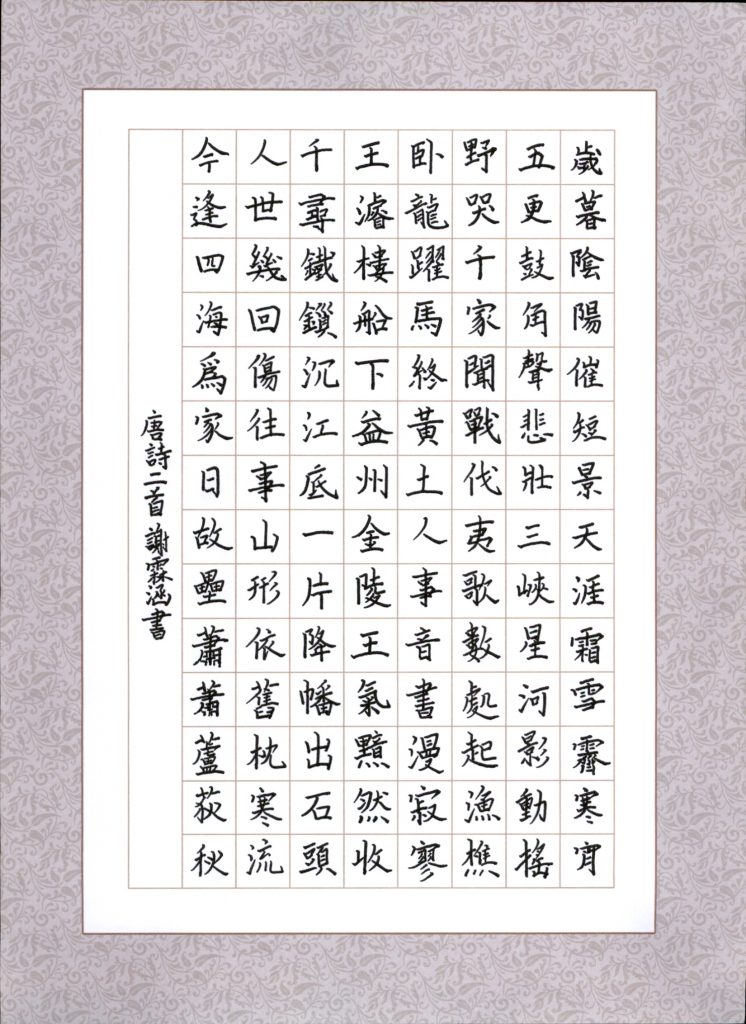 歲暮陰陽催短景天涯霜雪霽寒宵
五更鼓角聲悲壯三峽星河影動搖
野哭千家聞戰伐夷歌數處起漁樵
卧龍躍馬終黃土人事音書漫寂寥
王濬樓船下益州金陵王氣黯然收
千尋鐵鎖沉江底一片降幡出石頭
人世幾回傷往事山形依舊枕寒流
今逢四海爲家日故壘蕭蕭蘆荻秋
唐詩二首謝霖涵書